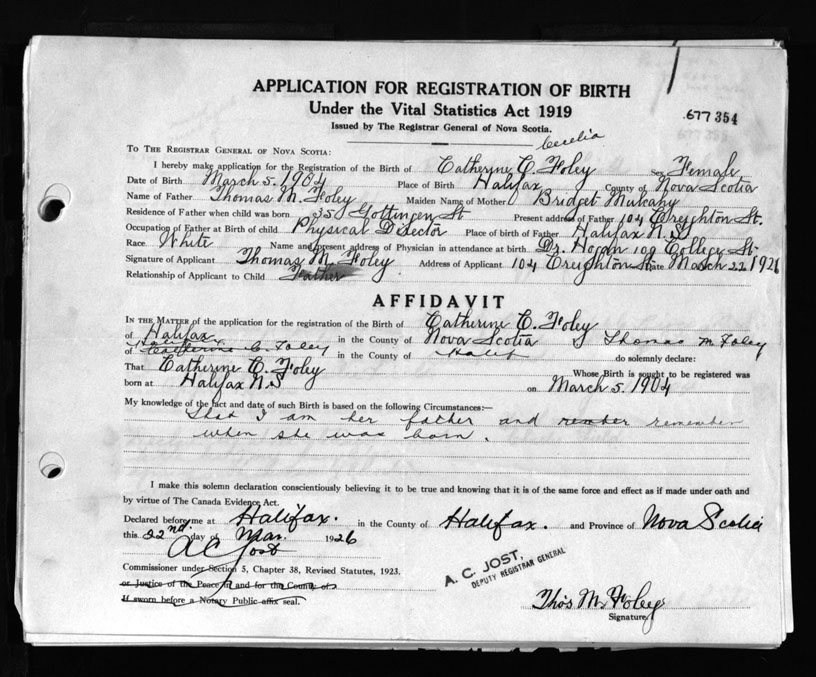 APPLICATION FOR REGISTRATION OF BIRTH
Under the Vital Statistics Act 1919
677354
Issued by The Registrar General of Nova Scotia.
Cecelia
TO THE REGISTRAR GENERAL OF NOVA SCOTIA:
I hereby make application for the Registration of the Birth of Catherine C. Foley Sex Female
Date of Birth March 5. 1904 Place of Birth Halifax County of Nova Scotia
Name of Father Thomas M. Foley Maiden Name of Mother Bridget Mulcahy
Residence of Father when child was born 350 Gottingen St Present address of Father 104 Creighton St.
Occupation of Father at Birth of child Physical Director Place of birth of Father Halifax N.S
Race White Name and present address of Physician in attendance at birth Dr. Hogan 109 College St
Signature of Applicant Thomas M. Foley Address of Applicant 104 Creighton St. Date March 22 1926
Relationship of Applicant to Child Father
AFFIDAVIT
IN THE MATTER of the application for the registration of the Birth of Catherine C. Foley
of Halifax in the County of Nova Scotia I Thomas M Foley
of Catherine C. Foley in the County of Halif do solemnly declare:
That Catherine C. Foley Whose Birth is sought to be registered was
born at Halifax N.S on March 5. 1904
My knowledge of the fact and date of such Birth is based on the following Circumstances:—
That I am her father and remember
when she was born.
I make this solemn declaration conscientiously believing it to be true and knowing that it is of the same force and effect as if made under oath and
by virtue of The Canada Evidence Act.
Declared before me at Halifax. in the County of Halifax. and Province of Nova Scotia
this 22nd. day of Mar. 1926
A C Jost
Commissioner under Section 5, Chapter 38, Revised Statutes, 1923.
A. C. JOST,
DEPUTY REGISTRAR GENERAL
or Justice of the Peace in and for the County of
If sworn before a Notary Public affix seal.
Thos M. Foley
Signature